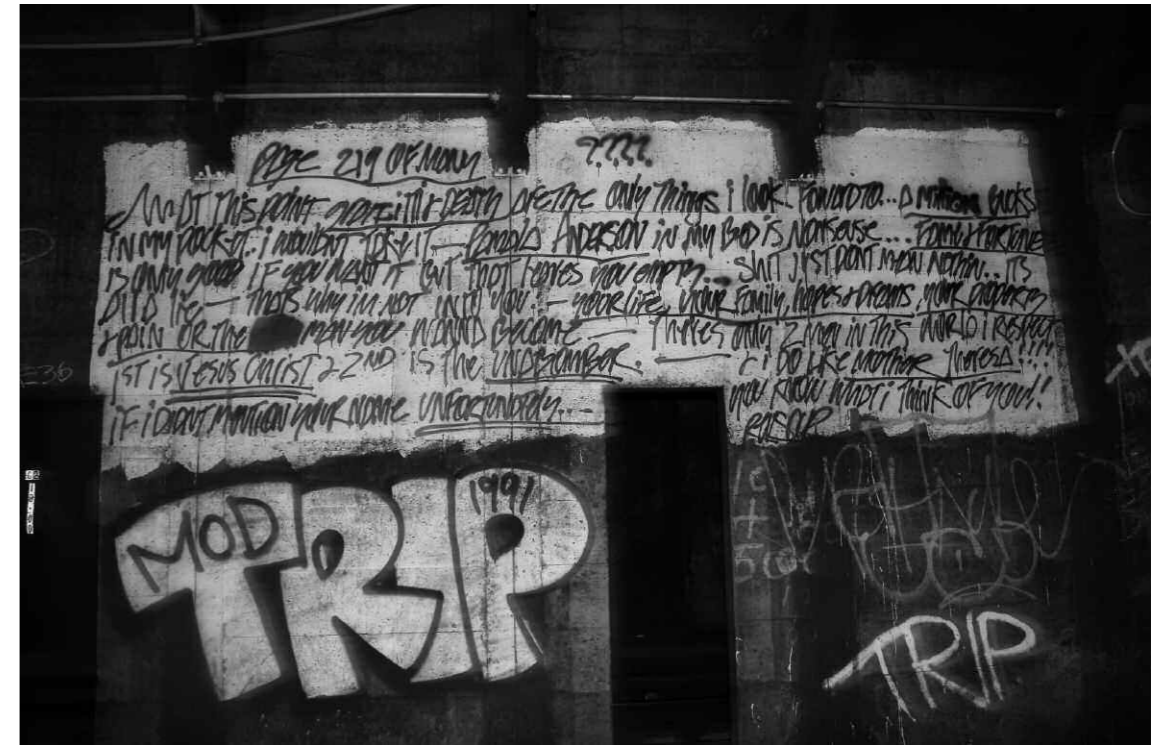 PAGE 219 OF MANY ????
AT THIS POINT GRAFFITI & DEATH ARE THE ONLY THINGS i look FORWARD TO... A MILLION BUCKS
IN MY POCKET. i WOULDNT TAKE IT — PAMALA ANDERSON iN MY BED IS NONSENSE... FAME & FORTUNE
IS ONLY good IF you WANT IT BUT THAT leaves you empty... SHIT JUST DONT MEAN NOTHIN.. ITS
All A lie — THATS WHY im NOT INTO YOU. — YOUR liFE, YOUR FAMily, hopes & DREAMS, YOUR property
& PAIN OR THE MAN YOU WANNA BECOME — THERES ONly 2 MEN iN THIS WORLD i RESPECT
1ST IS JESUS CHRIST & 2ND IS THE UNDISOMBER. — i DO LIKE MOTHER THERESA!!!
IF i DIDNT MENTION YOUR NAME UNFORTUNATELY... YOU KNOW WHAT i THINK OF YOU!!
MOD
1991
TRIP
TRIP